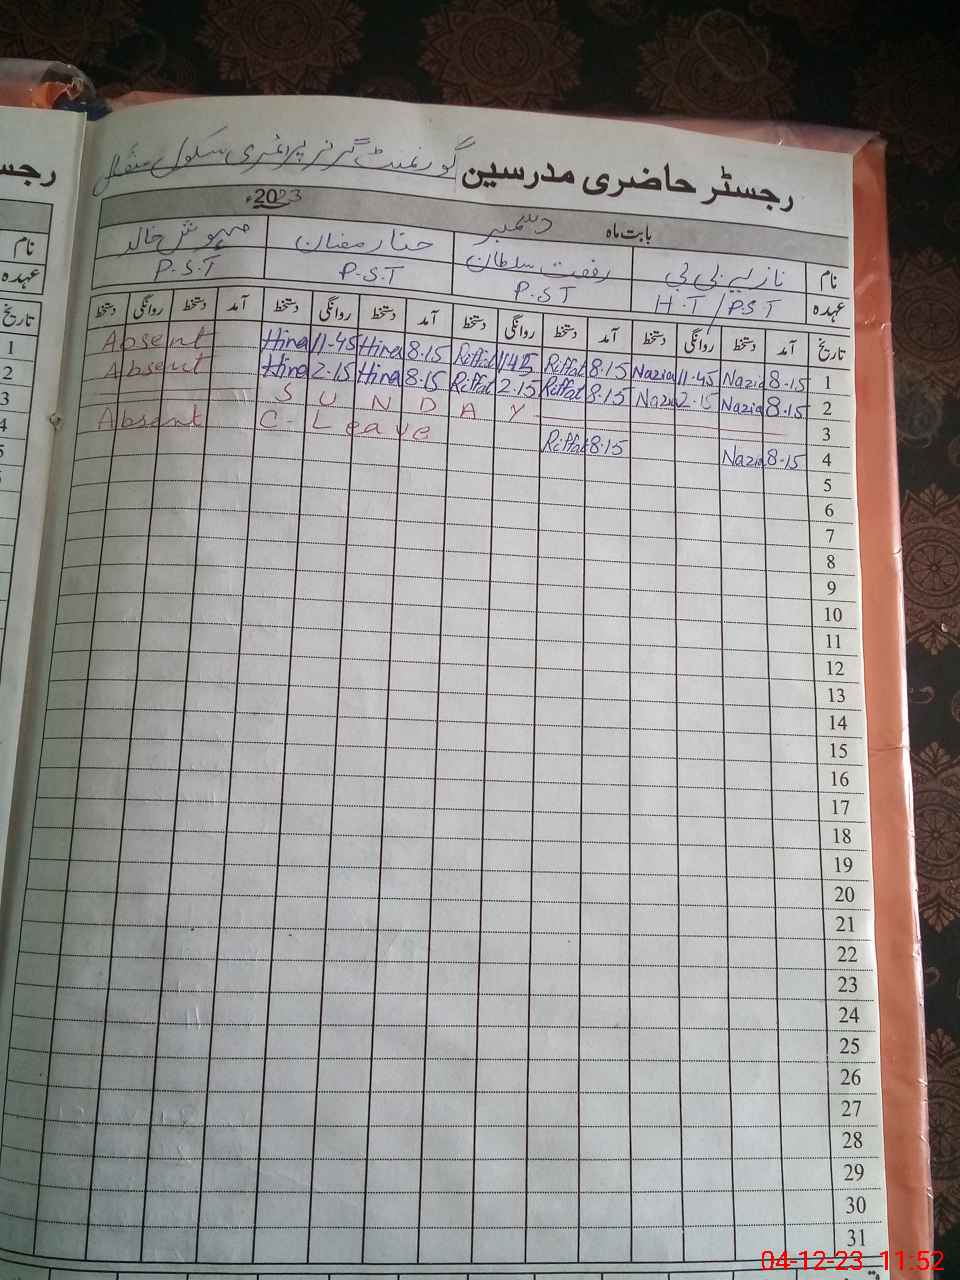 رجسٹر حاضری مدرسین گورنمنٹ گرلز پرائمری سکول
بابت ماہ دسمبر 2023ء
نام نازیہ بی بی رفعت سلطان حنا رمضان مہوش خالد
عہدہ H.T/P.S.T P.S.T P.S.T P.S.T
تاریخ آمد دستخط روانگی دستخط آمد دستخط روانگی دستخط آمد دستخط روانگی دستخط آمد دستخط روانگی دستخط
1 8-15 Nazia 11-45 Nazia 8-15 Riffat 1145 Riffat 8-15 Hina 11-45 Hina Absent
2 8-15 Nazia 2-15 Nazia 8-15 Riffat 2-15 Riffat 8-15 Hina 2-15 Hina Absent
3 SUNDAY
4 8-15 Nazia 8-15 Riffat C-Leave Absent
5
6
7
8
9
10
11
12
13
14
15
16
17
18
19
20
21
22
23
24
25
26
27
28
29
30
31
رجس
نام
عہدہ
تاریخ
1
2
3
4
5
04-12-23 11:52